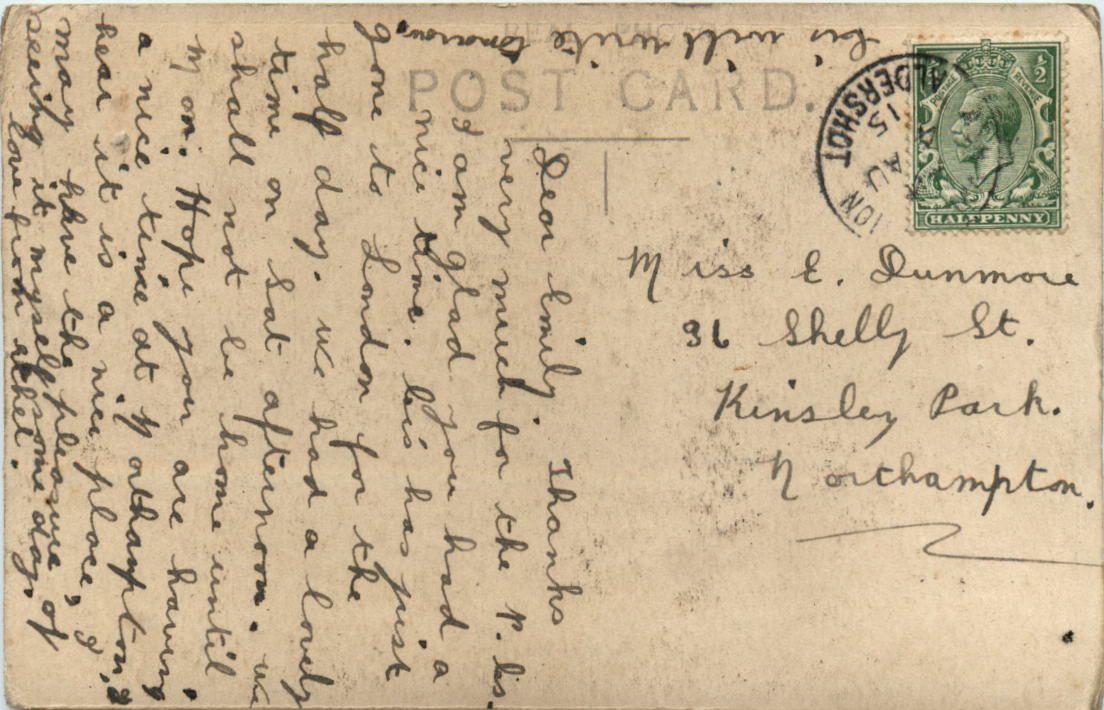 REAL PHOTO
POST CARD.
Lis will write tomorrow
Dear Emily. Thanks
very much for the P. Cs.
I am glad you had a
nice time. Lis has just
gone to London for the
half day. We had a lovely
time on Sat afternoon. We
shall not be home until
Mon. Hope you are having
a nice time at Northampton, I
hear it is a nice place, I
may have the pleasure of
seeing it myself some day,
love from Ethel.
ALDERSHOT
AU
15
HALFPENNY
POSTAGE REVENUE
½
Miss E. Dunmore
36 Shelly St.
Kinsley Park.
Northampton.